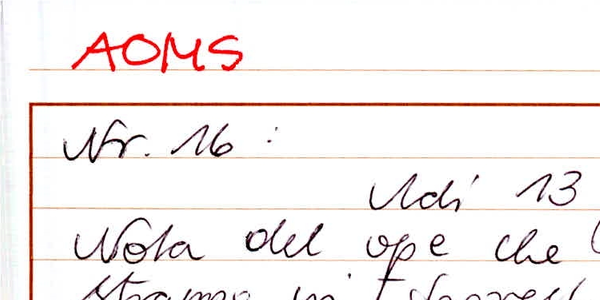 AOMS
Nr. 16 :
Adi 13
Nota del ope che